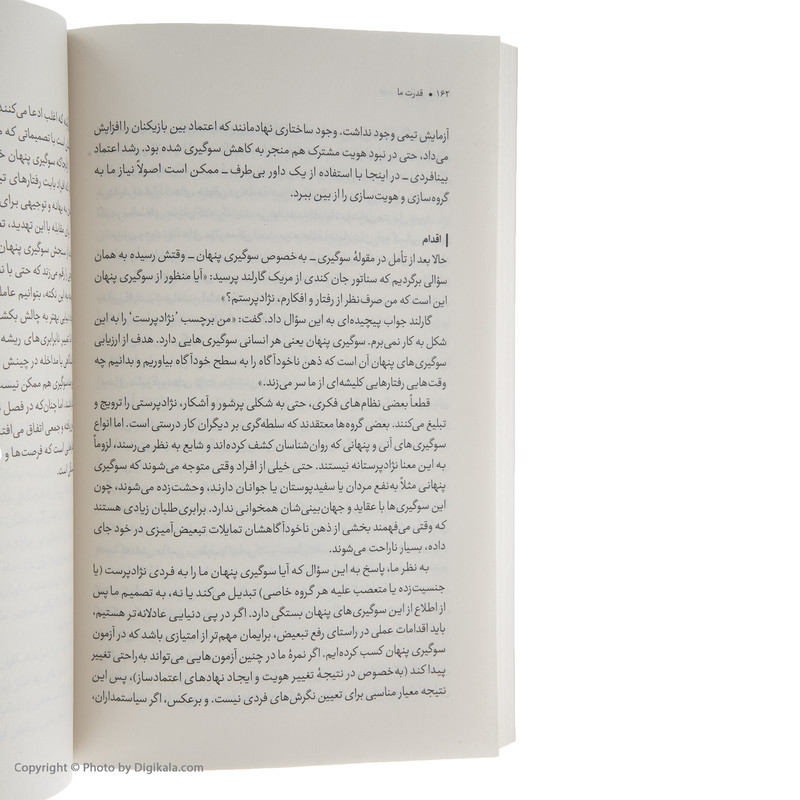 ۱۶۲ • قدرت ما
آزمایش تیمی وجود نداشت. وجود ساختاری نهادمانند که اعتماد بین بازیکنان را افزایش
می‌داد، حتی در نبود هویت مشترک هم منجر به کاهش سوگیری شده بود. رشد اعتماد
بینافردی ـ در اینجا با استفاده از یک داور بی‌طرف ـ ممکن است اصولاً نیاز ما به
گروه‌سازی و هویت‌سازی را از بین ببرد.
اقدام
حالا بعد از تأمل در مقولهٔ سوگیری ـ به‌خصوص سوگیری پنهان ـ وقتش رسیده به همان
سؤالی برگردیم که سناتور جان کندی از مریک گارلند پرسید: «آیا منظور از سوگیری پنهان
این است که من صرف‌نظر از رفتار و افکارم، نژادپرستم؟»
گارلند جواب پیچیده‌ای به این سؤال داد. گفت: «من برچسب ’نژادپرست‘ را به این
شکل به کار نمی‌برم. سوگیری پنهان یعنی هر انسانی سوگیری‌هایی دارد. هدف از ارزیابی
سوگیری‌های پنهان آن است که ذهن ناخودآگاه را به سطح خودآگاه بیاوریم و بدانیم چه
وقت‌هایی رفتارهایی کلیشه‌ای از ما سر می‌زند.»
قطعاً بعضی نظام‌های فکری، حتی به شکلی پرشور و آشکار، نژادپرستی را ترویج و
تبلیغ می‌کنند. بعضی گروه‌ها معتقدند که سلطه‌گری بر دیگران کار درستی است. اما انواع
سوگیری‌های آنی و پنهانی که روان‌شناسان کشف کرده‌اند و شایع به نظر می‌رسند، لزوماً
به این معنا نژادپرستانه نیستند. حتی خیلی از افراد وقتی متوجه می‌شوند که سوگیری
پنهانی مثلاً به‌نفع مردان یا سفیدپوستان یا جوانان دارند، وحشت‌زده می‌شوند، چون
این سوگیری‌ها با عقاید و جهان‌بینی‌شان همخوانی ندارد. برابری‌طلبان زیادی هستند
که وقتی می‌فهمند بخشی از ذهن ناخودآگاهشان تمایلات تبعیض‌آمیزی در خود جای
داده، بسیار ناراحت می‌شوند.
به نظر ما، پاسخ به این سؤال که آیا سوگیری پنهان ما را به فردی نژادپرست (یا
جنسیت‌زده یا متعصب علیه هر گروه خاصی) تبدیل می‌کند یا نه، به تصمیم ما پس
از اطلاع از این سوگیری‌های پنهان بستگی دارد. اگر در پی دنیایی عادلانه‌تر هستیم،
باید اقدامات عملی در راستای رفع تبعیض، برایمان مهم‌تر از امتیازی باشد که در آزمون
سوگیری پنهان کسب کرده‌ایم. اگر نمرهٔ ما در چنین آزمون‌هایی می‌تواند به‌راحتی تغییر
پیدا کند (به‌خصوص در نتیجهٔ تغییر هویت و ایجاد نهادهای اعتمادساز)، پس این
نتیجه معیار مناسبی برای تعیین نگرش‌های فردی نیست. و برعکس، اگر سیاستمداران،
که اغلب ادعا می‌کنند
است با تصمیماتی که
سوگیری پنهان
افراد بابت رفتارهای
بهانه و توجیهی برای
مقابله با این تهدید،
سنجش سوگیری پنهان
رقم می‌زند که حتی با
این نکته، بتوانیم
بهتر به چالش
تغییر نابرابری‌های ریشه
یا مداخله در چینش
سوگیری هم ممکن نیست
اما چنان‌که در فصل
و جمعی اتفاق
است که فرصت‌ها و
است.
Copyright © Photo by Digikala.com